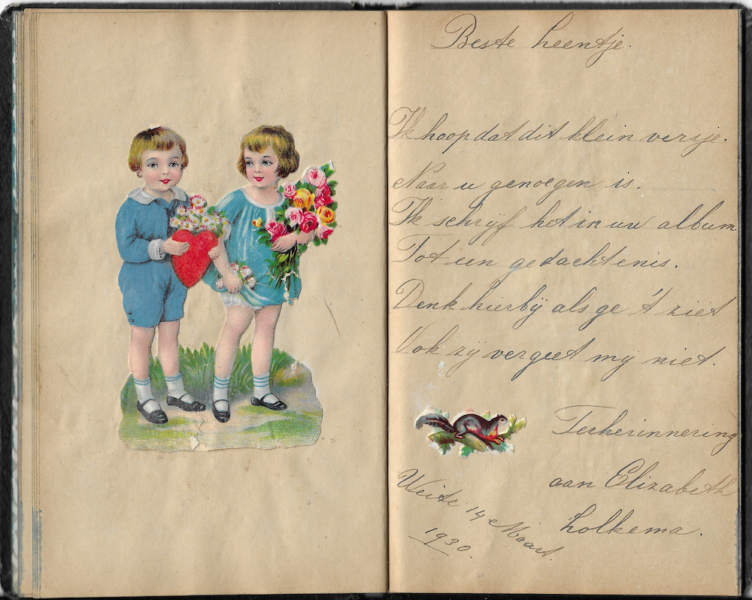 Beste heentje.
Ik hoop dat dit klein versje.
Naar u genoegen is.
Ik schrijf het in uw album
Tot een gedachtenis.
Denk hierbij als ge 't ziet
Ook zy vergeet my niet.
Terherinnering
aan Elizabeth
Lolkema.
14 Maart.
1930.